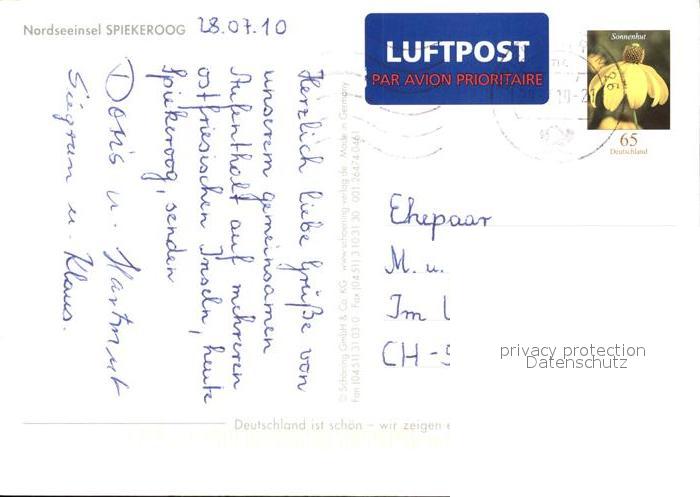 Nordseeinsel SPIEKEROOG
28.07.10
LUFTPOST
PAR AVION PRIORITAIRE
Sonnenhut
65
Deutschland
Herzlich liebe Grüße von
unserem gemeinsamen
Aufenthalt auf mehreren
ostfriesischen Inseln, heute
Spiekeroog, senden
Doris u. Hartmut
Siegrun u. Klaus.
© Schöning GmbH & Co. KG · www.schoening-verlag.de Made in Germany
Fon (0451) 31 03-0 · Fax (0451) 3103130
Ehepaar
M. u.
Im
CH-
privacy protection
Datenschutz
Deutschland ist schön – wir zeigen e